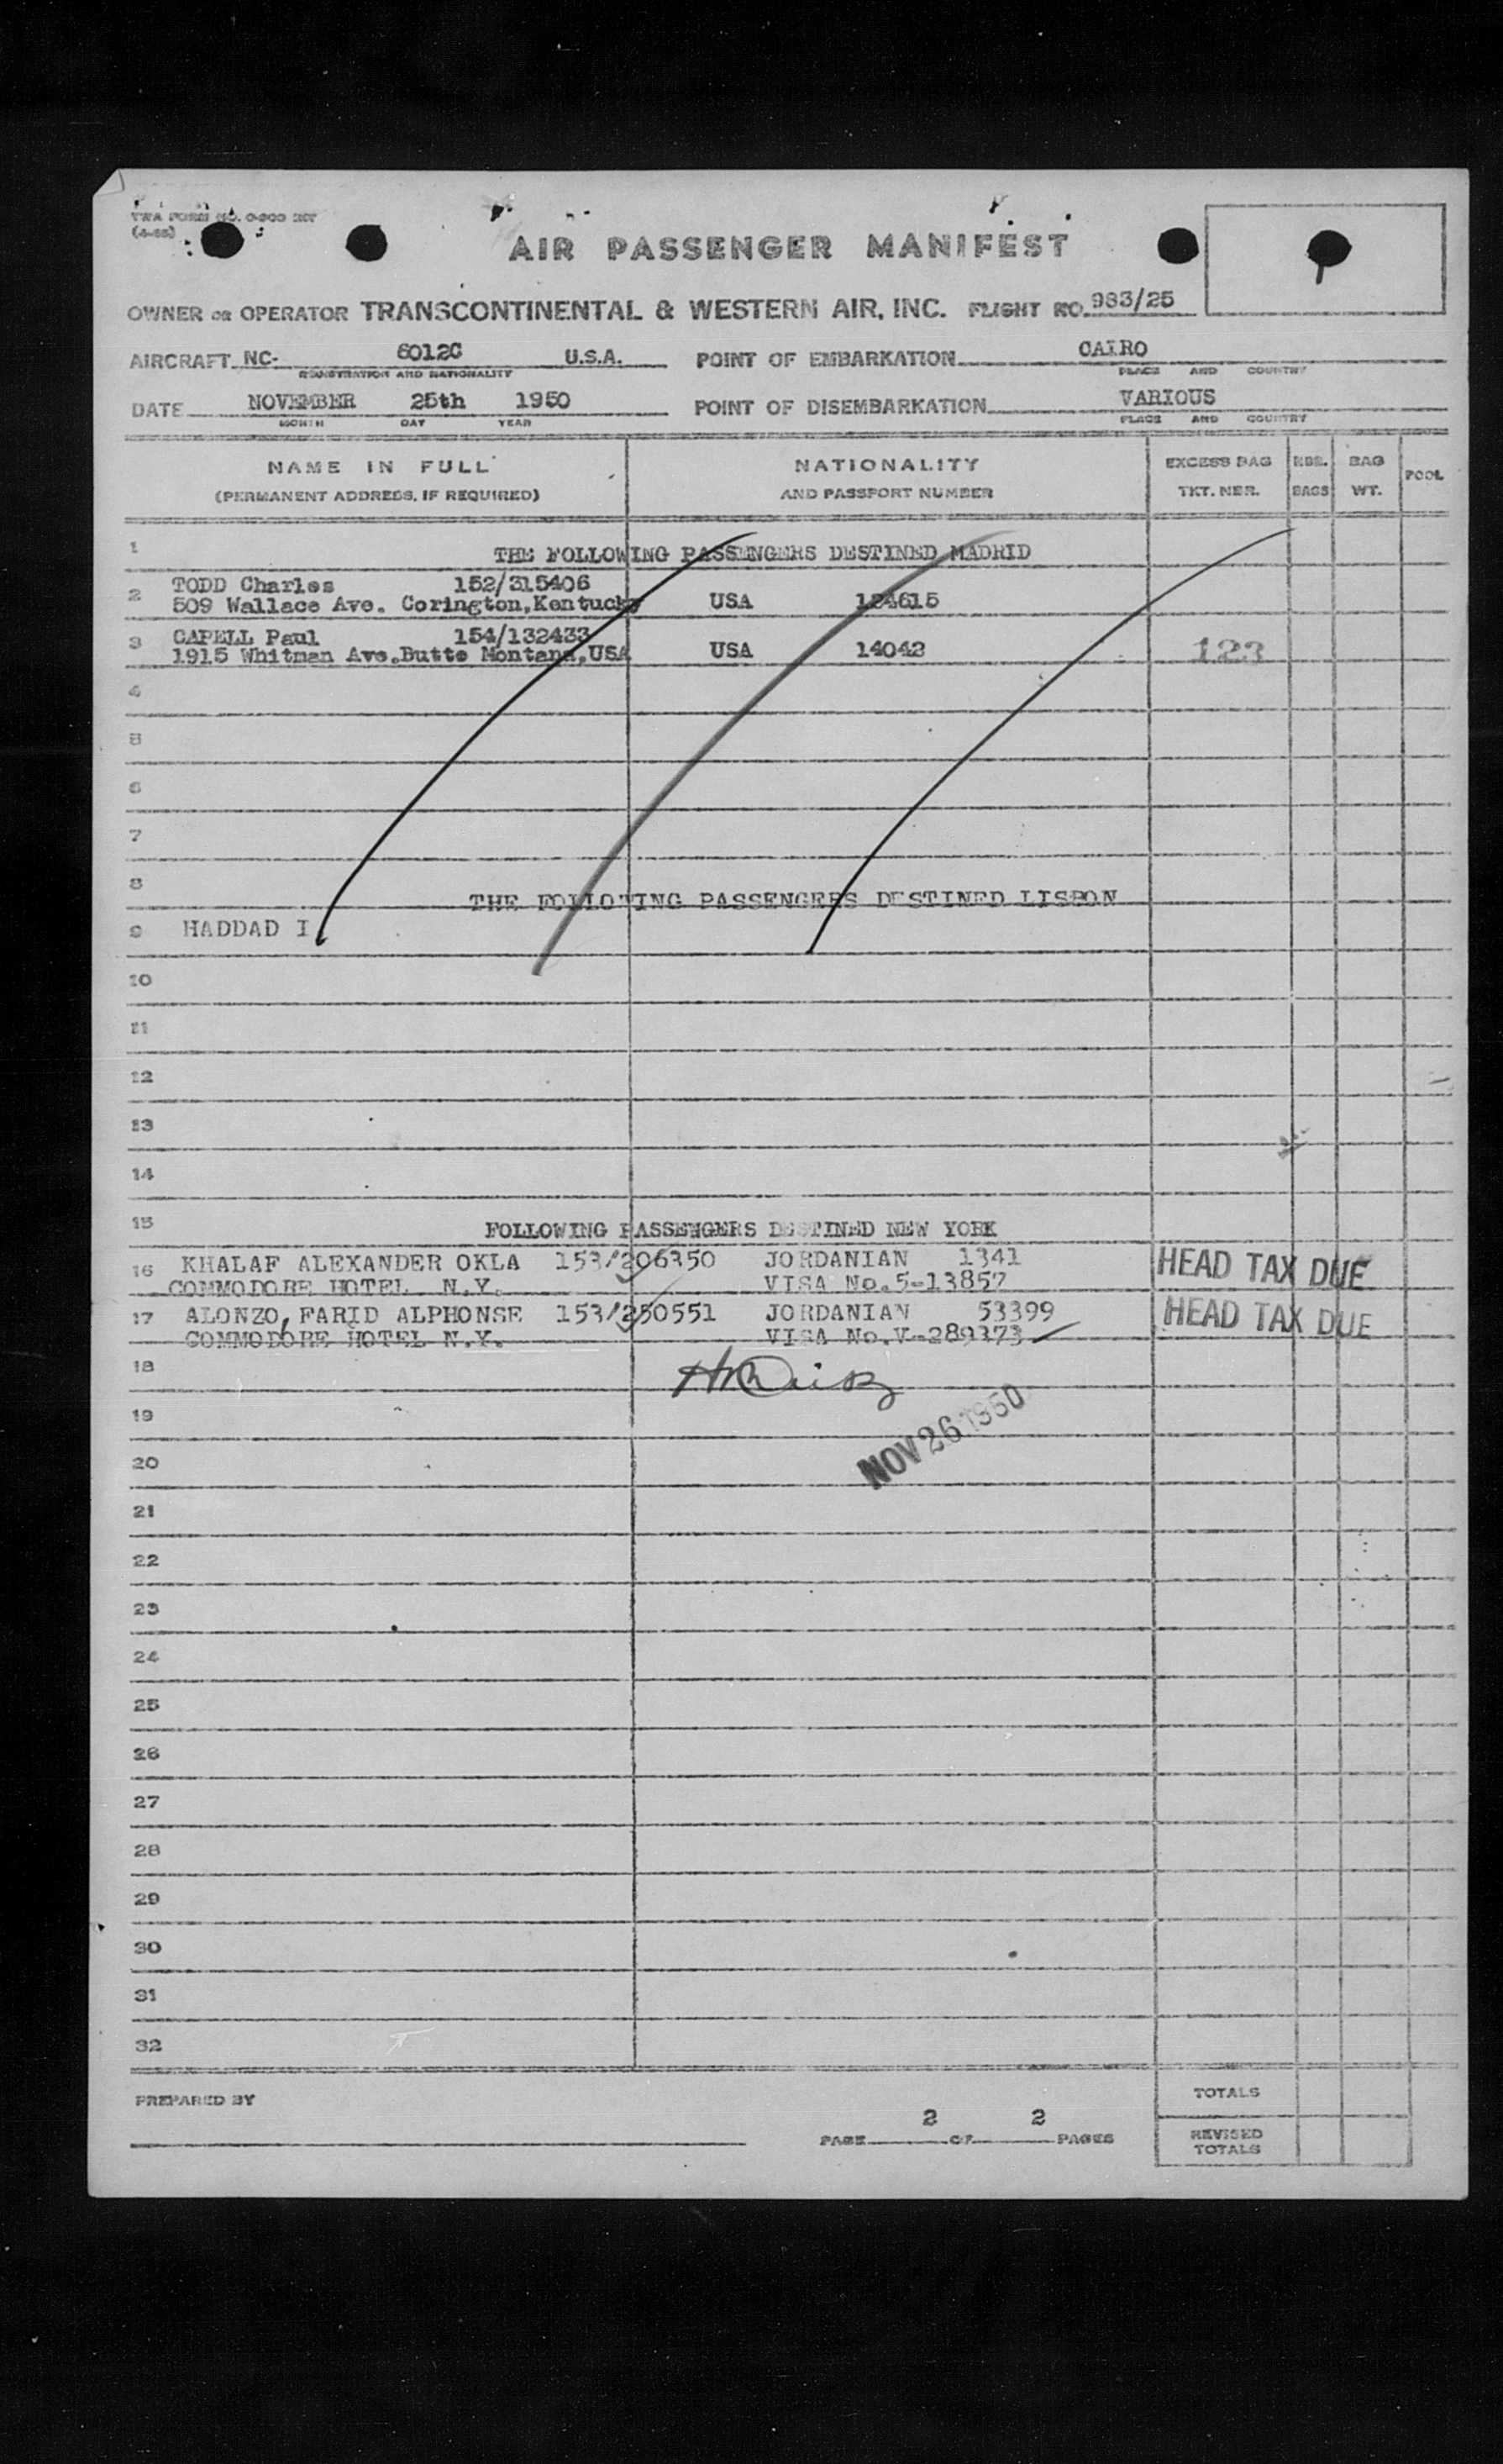 TWA FORM NO. 0-900 INT
AIR PASSENGER MANIFEST
OWNER OR OPERATOR TRANSCONTINENTAL & WESTERN AIR, INC. FLIGHT NO. 983/25
AIRCRAFT NC- 6012C U.S.A. POINT OF EMBARKATION CAIRO
REGISTRATION AND NATIONALITY PLACE AND COUNTRY
DATE NOVEMBER 25th 1950 POINT OF DISEMBARKATION VARIOUS
MONTH DAY YEAR PLACE AND COUNTRY
NAME IN FULL NATIONALITY EXCESS BAG NBR. BAG POOL
(PERMANENT ADDRESS, IF REQUIRED) AND PASSPORT NUMBER TKT. NBR. BAGS WT.
1 THE FOLLOWING PASSENGERS DESTINED MADRID
2 TODD Charles 152/315406
509 Wallace Ave. Corington,Kentucky USA 124615
3 CAPELL Paul 154/132433
1915 Whitman Ave.Butte Montana,USA USA 14042 123
4
5
6
7
8 THE FOLLOWING PASSENGERS DESTINED LISBON
9 HADDAD I
10
11
12
13
14
15 FOLLOWING PASSENGERS DESTINED NEW YORK
16 KHALAF ALEXANDER OKLA 153/206350 JORDANIAN 1341 HEAD TAX DUE
COMMODORE HOTEL N.Y. VISA No.5-13857
17 ALONZO, FARID ALPHONSE 153/250551 JORDANIAN 53399 HEAD TAX DUE
COMMODORE HOTEL N.Y. VISA No.V-289373
18
19
NOV 26 1950
20
21
22
23
24
25
26
27
28
29
30
31
32
PREPARED BY TOTALS
PAGE 2 OF 2 PAGES REVISED TOTALS